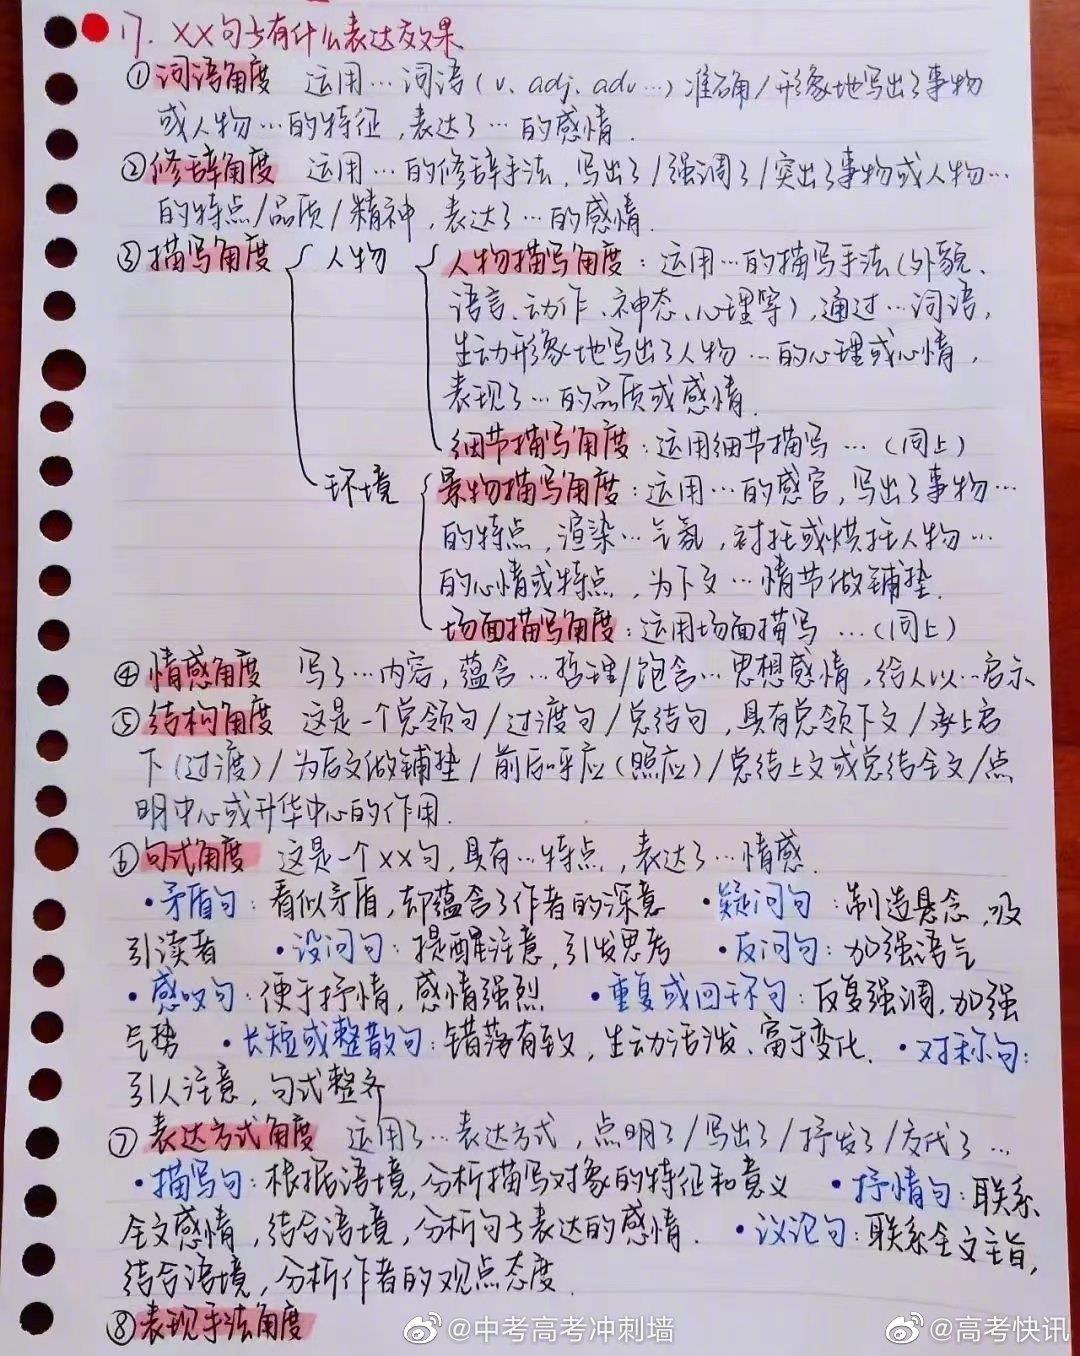 17. XX句子有什么表达效果
①词语角度 运用…词语(v、adj、adv…)准确/形象地写出了事物
或人物…的特征,表达了…的感情.
②修辞角度 运用…的修辞手法,写出了/强调了/突出了事物或人物…
的特点/品质/精神,表达了…的感情.
③描写角度 人物 人物描写角度:运用…的描写手法(外貌、
语言、动作、神态、心理等),通过…词语,
生动形象地写出了人物…的心理或心情,
表现了…的品质或感情.
细节描写角度:运用细节描写…(同上)
环境 景物描写角度:运用…的感官,写出了事物…
的特点,渲染…气氛,衬托或烘托人物…
的心情或特点,为下文…情节做铺垫.
场面描写角度:运用场面描写…(同上)
④情感角度 写了…内容,蕴含…哲理/饱含…思想感情,给人以…启示
⑤结构角度 这是一个总领句/过渡句/总结句,具有总领下文/承上启
下(过渡)/为后文做铺垫/前后呼应(照应)/总结上文或总结全文/点
明中心或升华中心的作用.
⑥句式角度 这是一个XX句,具有…特点,表达了…情感.
•矛盾句:看似矛盾,却蕴含了作者的深意 •疑问句:制造悬念,吸
引读者 •设问句:提醒注意,引发思考 •反问句:加强语气
•感叹句:便于抒情,感情强烈 •重复或回环句:反复强调,加强
气势 •长短或整散句:错落有致,生动活泼、富于变化. •对称句:
引人注意,句式整齐
⑦表达方式角度 运用了…表达方式,点明了/写出了/抒发了/交代了…
•描写句:根据语境,分析描写对象的特征和意义 •抒情句:联系
全文感情,结合语境,分析句子表达的感情. •议论句:联系全文主旨,
结合语境,分析作者的观点态度.
⑧表现手法角度
@中考高考冲刺墙 @高考快讯